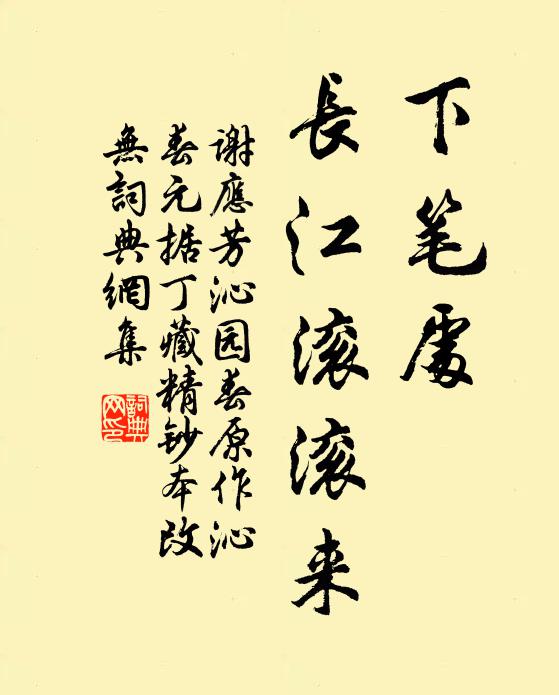 下笔處
長江滚滚来
谢應芳沁园春原作沁
春元据丁藏精鈔本改
無詞典網集
詞典
网印